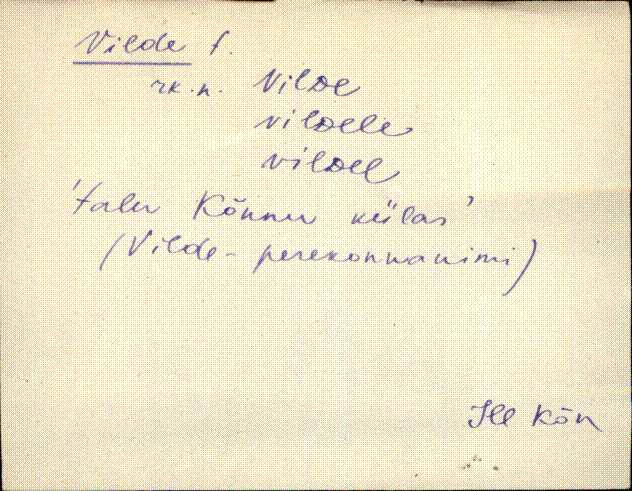 Vilde t.
rk. n. Vilde
vildele
vildel
'talu Kõnnu külas'
(Vilde - perekonnanimi)
Jll Kõn